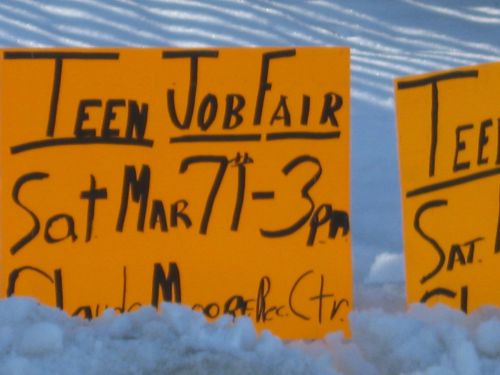 TEEN JOB FAIR
Sat MAR 7th 1-3pm
Claude MOORE Rec. Ctr.
TEE
SAT.